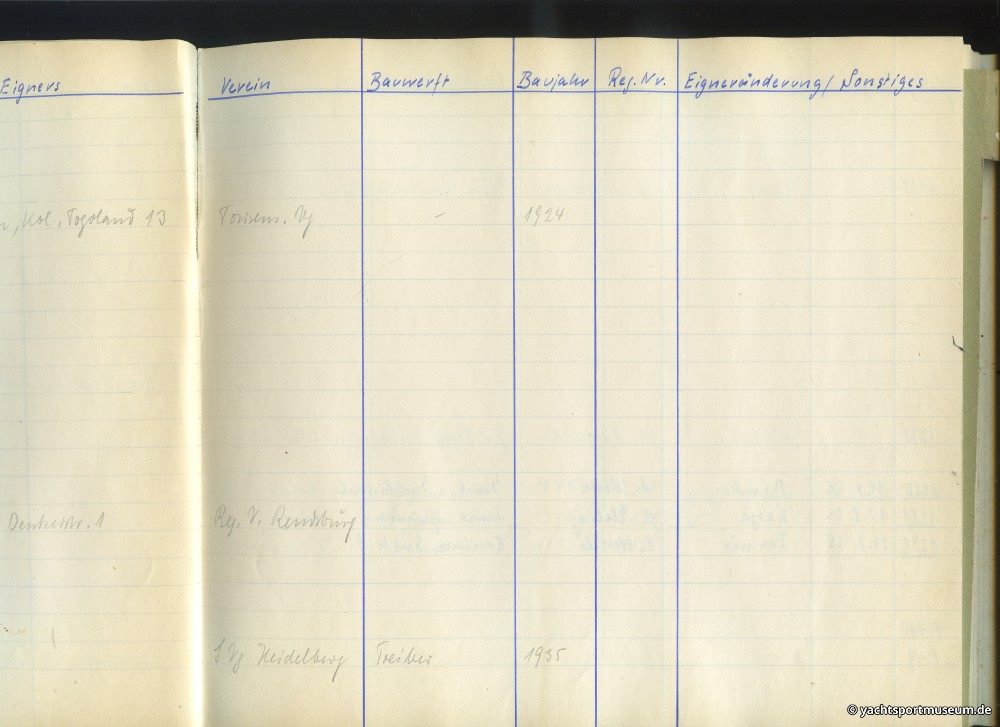 Eigners Verein Bauwerft Baujahr Reg. Nr. Eigneränderung/ Sonstiges
Kol. Togoland 13 - 1924
Dentestr. 1 Reg. V. Rendsburg
S Vg Heidelberg Treiber 1935
© yachtsportmuseum.de